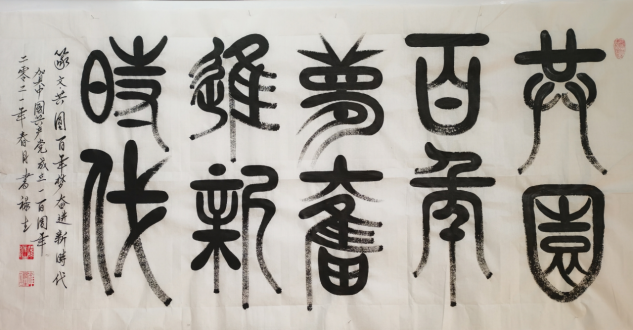 共園
百年
夢奮
進新
時代
篆文共圆百年梦奋进新時代
贺中國共产党成立一百周年
二零二一年春月書